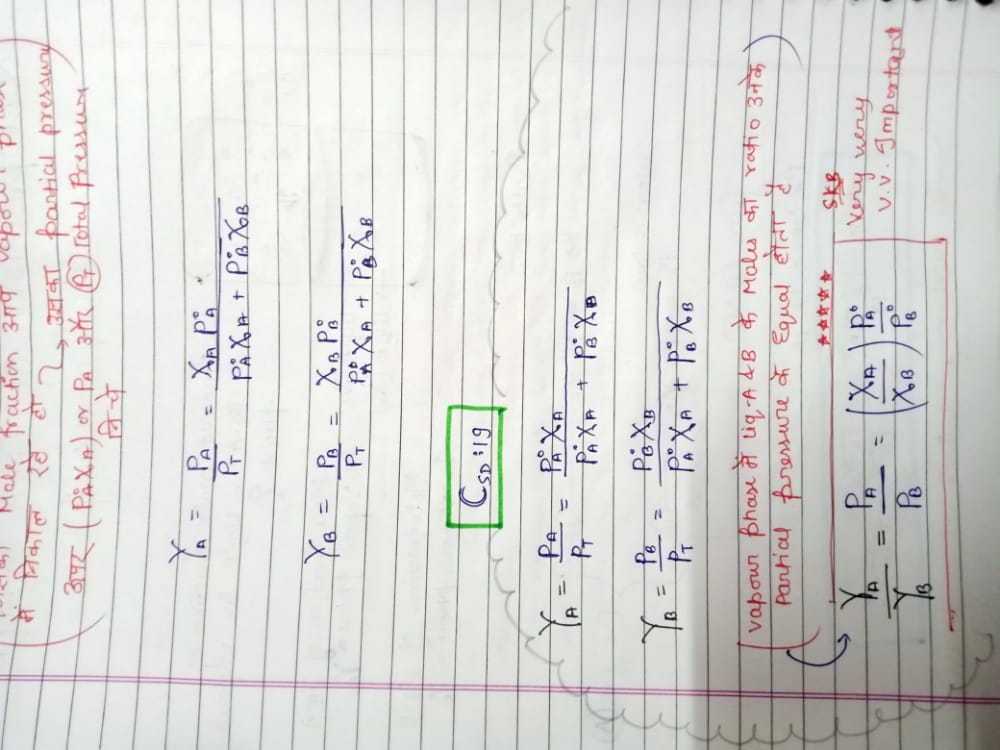 Mole fraction आप vapour phase
में निकाल रहे हो → उसका partial pressure
ऊपर (P°A XA) or PA और (PT) Total Pressure
नीचे
YA = PA/PT = XA P°A / P°A XA + P°B XB
YB = PB/PT = XB P°B / P°A XA + P°B XB
CSD:19
YA = PA/PT = P°A XA / P°A XA + P°B XB
YB = PB/PT = P°B XB / P°A XA + P°B XB
(vapour phase में liq. A & B के Moles का ratio उनके
partial pressure के Equal होता है)
★★★★★ SKB
YA/YB = PA/PB = (XA/XB) P°A/P°B
Very very
v.v. Important